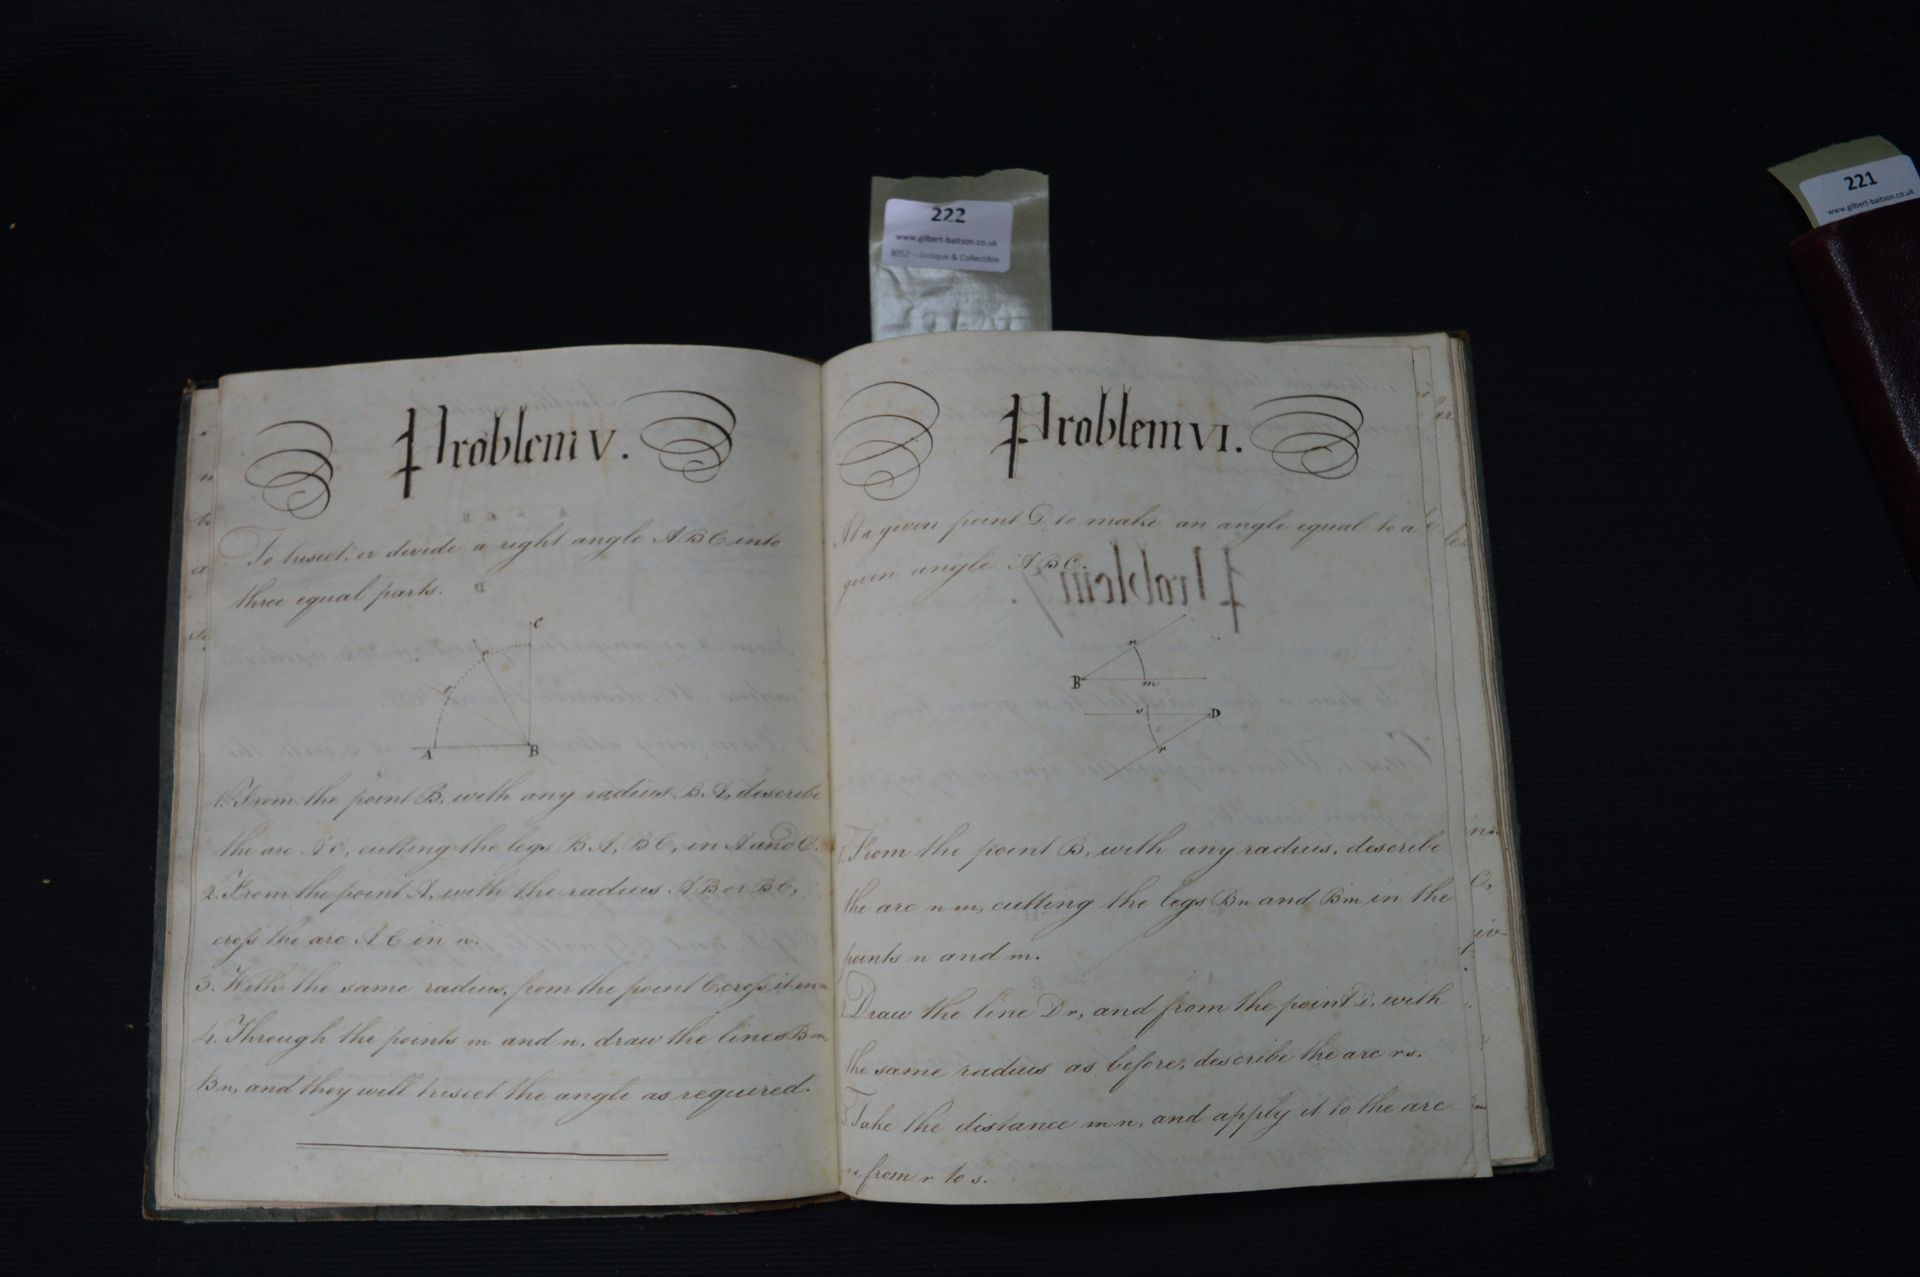 222
www.gilbert-baitson.co.uk
8052 – Antique & Collectible
221
www.gilbert-baitson.co.uk
Problem V.
To trisect, or divide a right angle ABC into
three equal parts.
C
m
n
A
B
1. From the point B, with any radius BA, describe
the arc AC, cutting the legs BA, BC, in A and C.
2. From the point A, with the radius AB or BC,
croſs the arc AC in n.
3. With the same radius, from the point C, croſs it in m
4. Through the points m and n, draw the lines Bm,
Bn, and they will trisect the angle as required.
Problem VI.
At a given point D to make an angle equal to a
given angle ABC.
n
B
m
s
D
r
From the point B, with any radius, describe
the arc nm, cutting the legs Bn and Bm in the
points n and m.
Draw the line Dr, and from the point D, with
the same radius as before, describe the arc rs.
Take the distance mn, and apply it to the arc
from r to s.